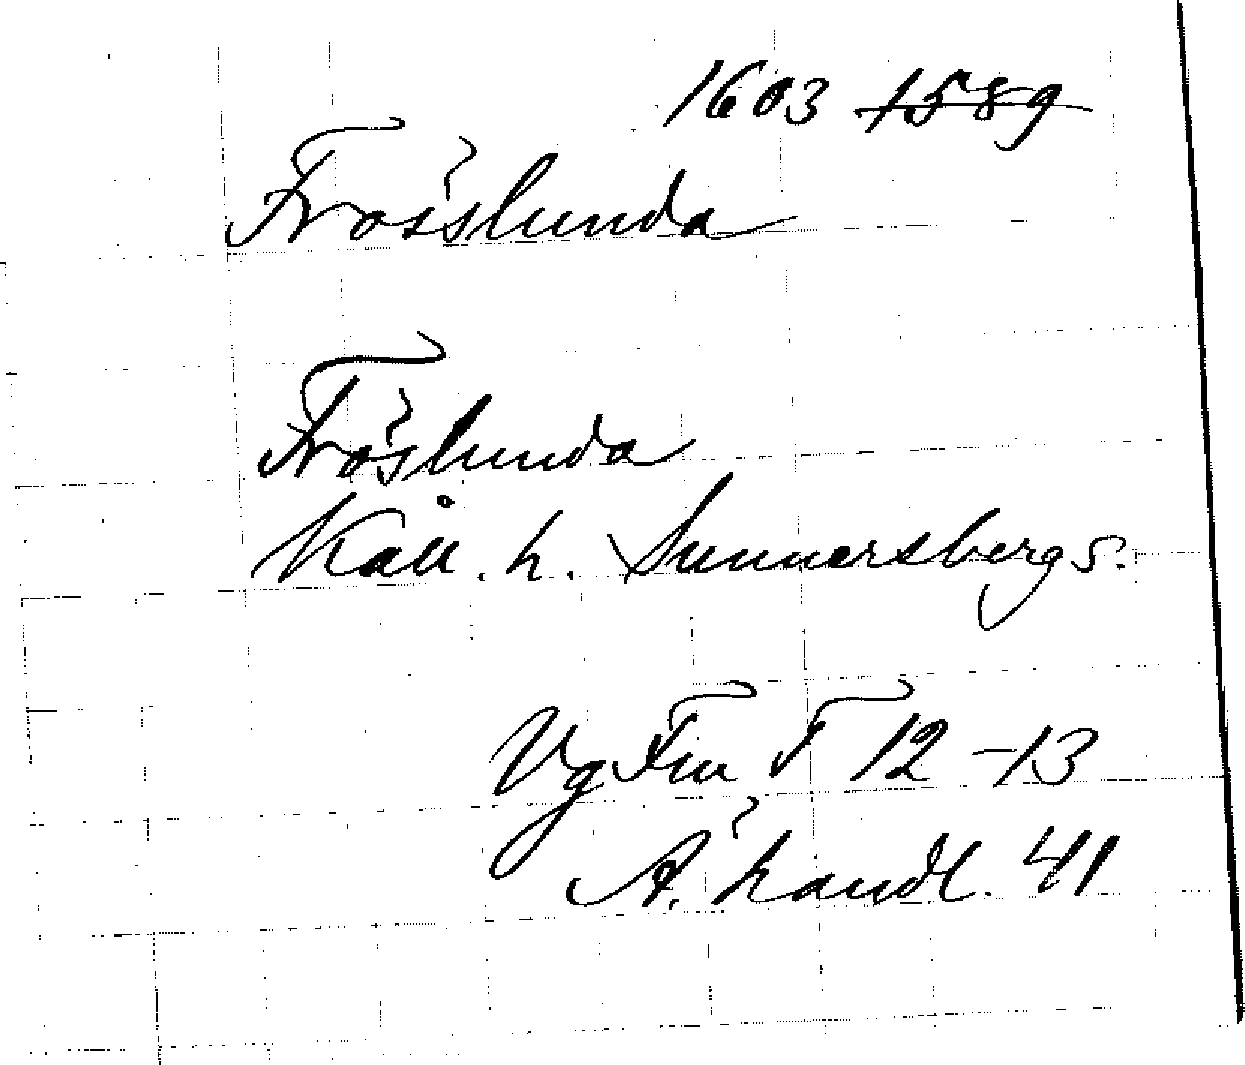 1603 1589
Frösslunda
Fröslunda
Kåll. h. Sunnersbergs.
Vg Fru F 12-13
Ä. handl. 41